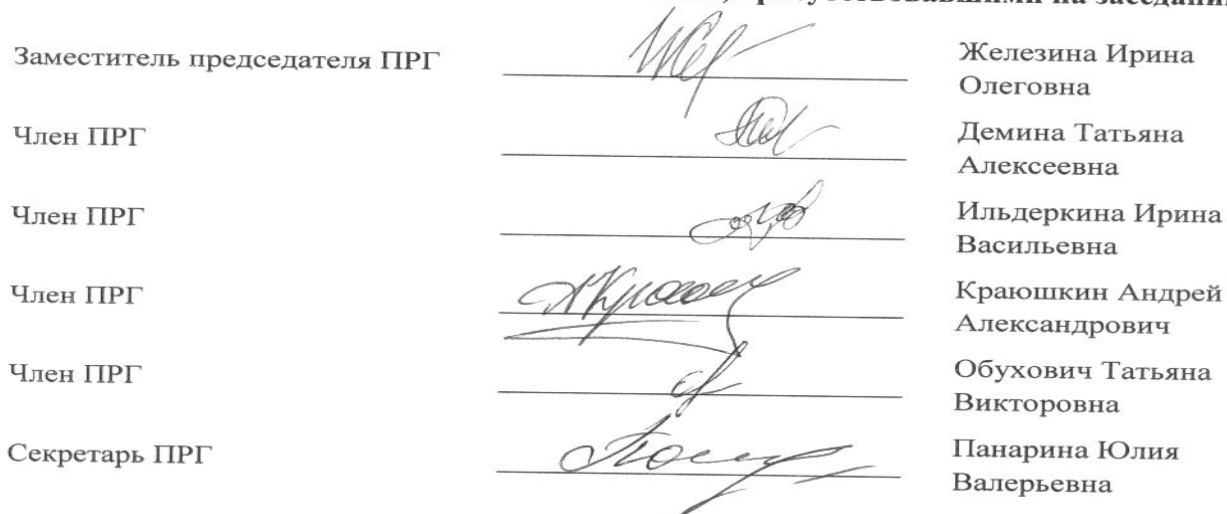 присутствовавшими на заседании
Заместитель председателя ПРГ
Железина Ирина
Олеговна
Член ПРГ
Демина Татьяна
Алексеевна
Член ПРГ
Ильдеркина Ирина
Васильевна
Член ПРГ
Краюшкин Андрей
Александрович
Член ПРГ
Обухович Татьяна
Викторовна
Секретарь ПРГ
Панарина Юлия
Валерьевна